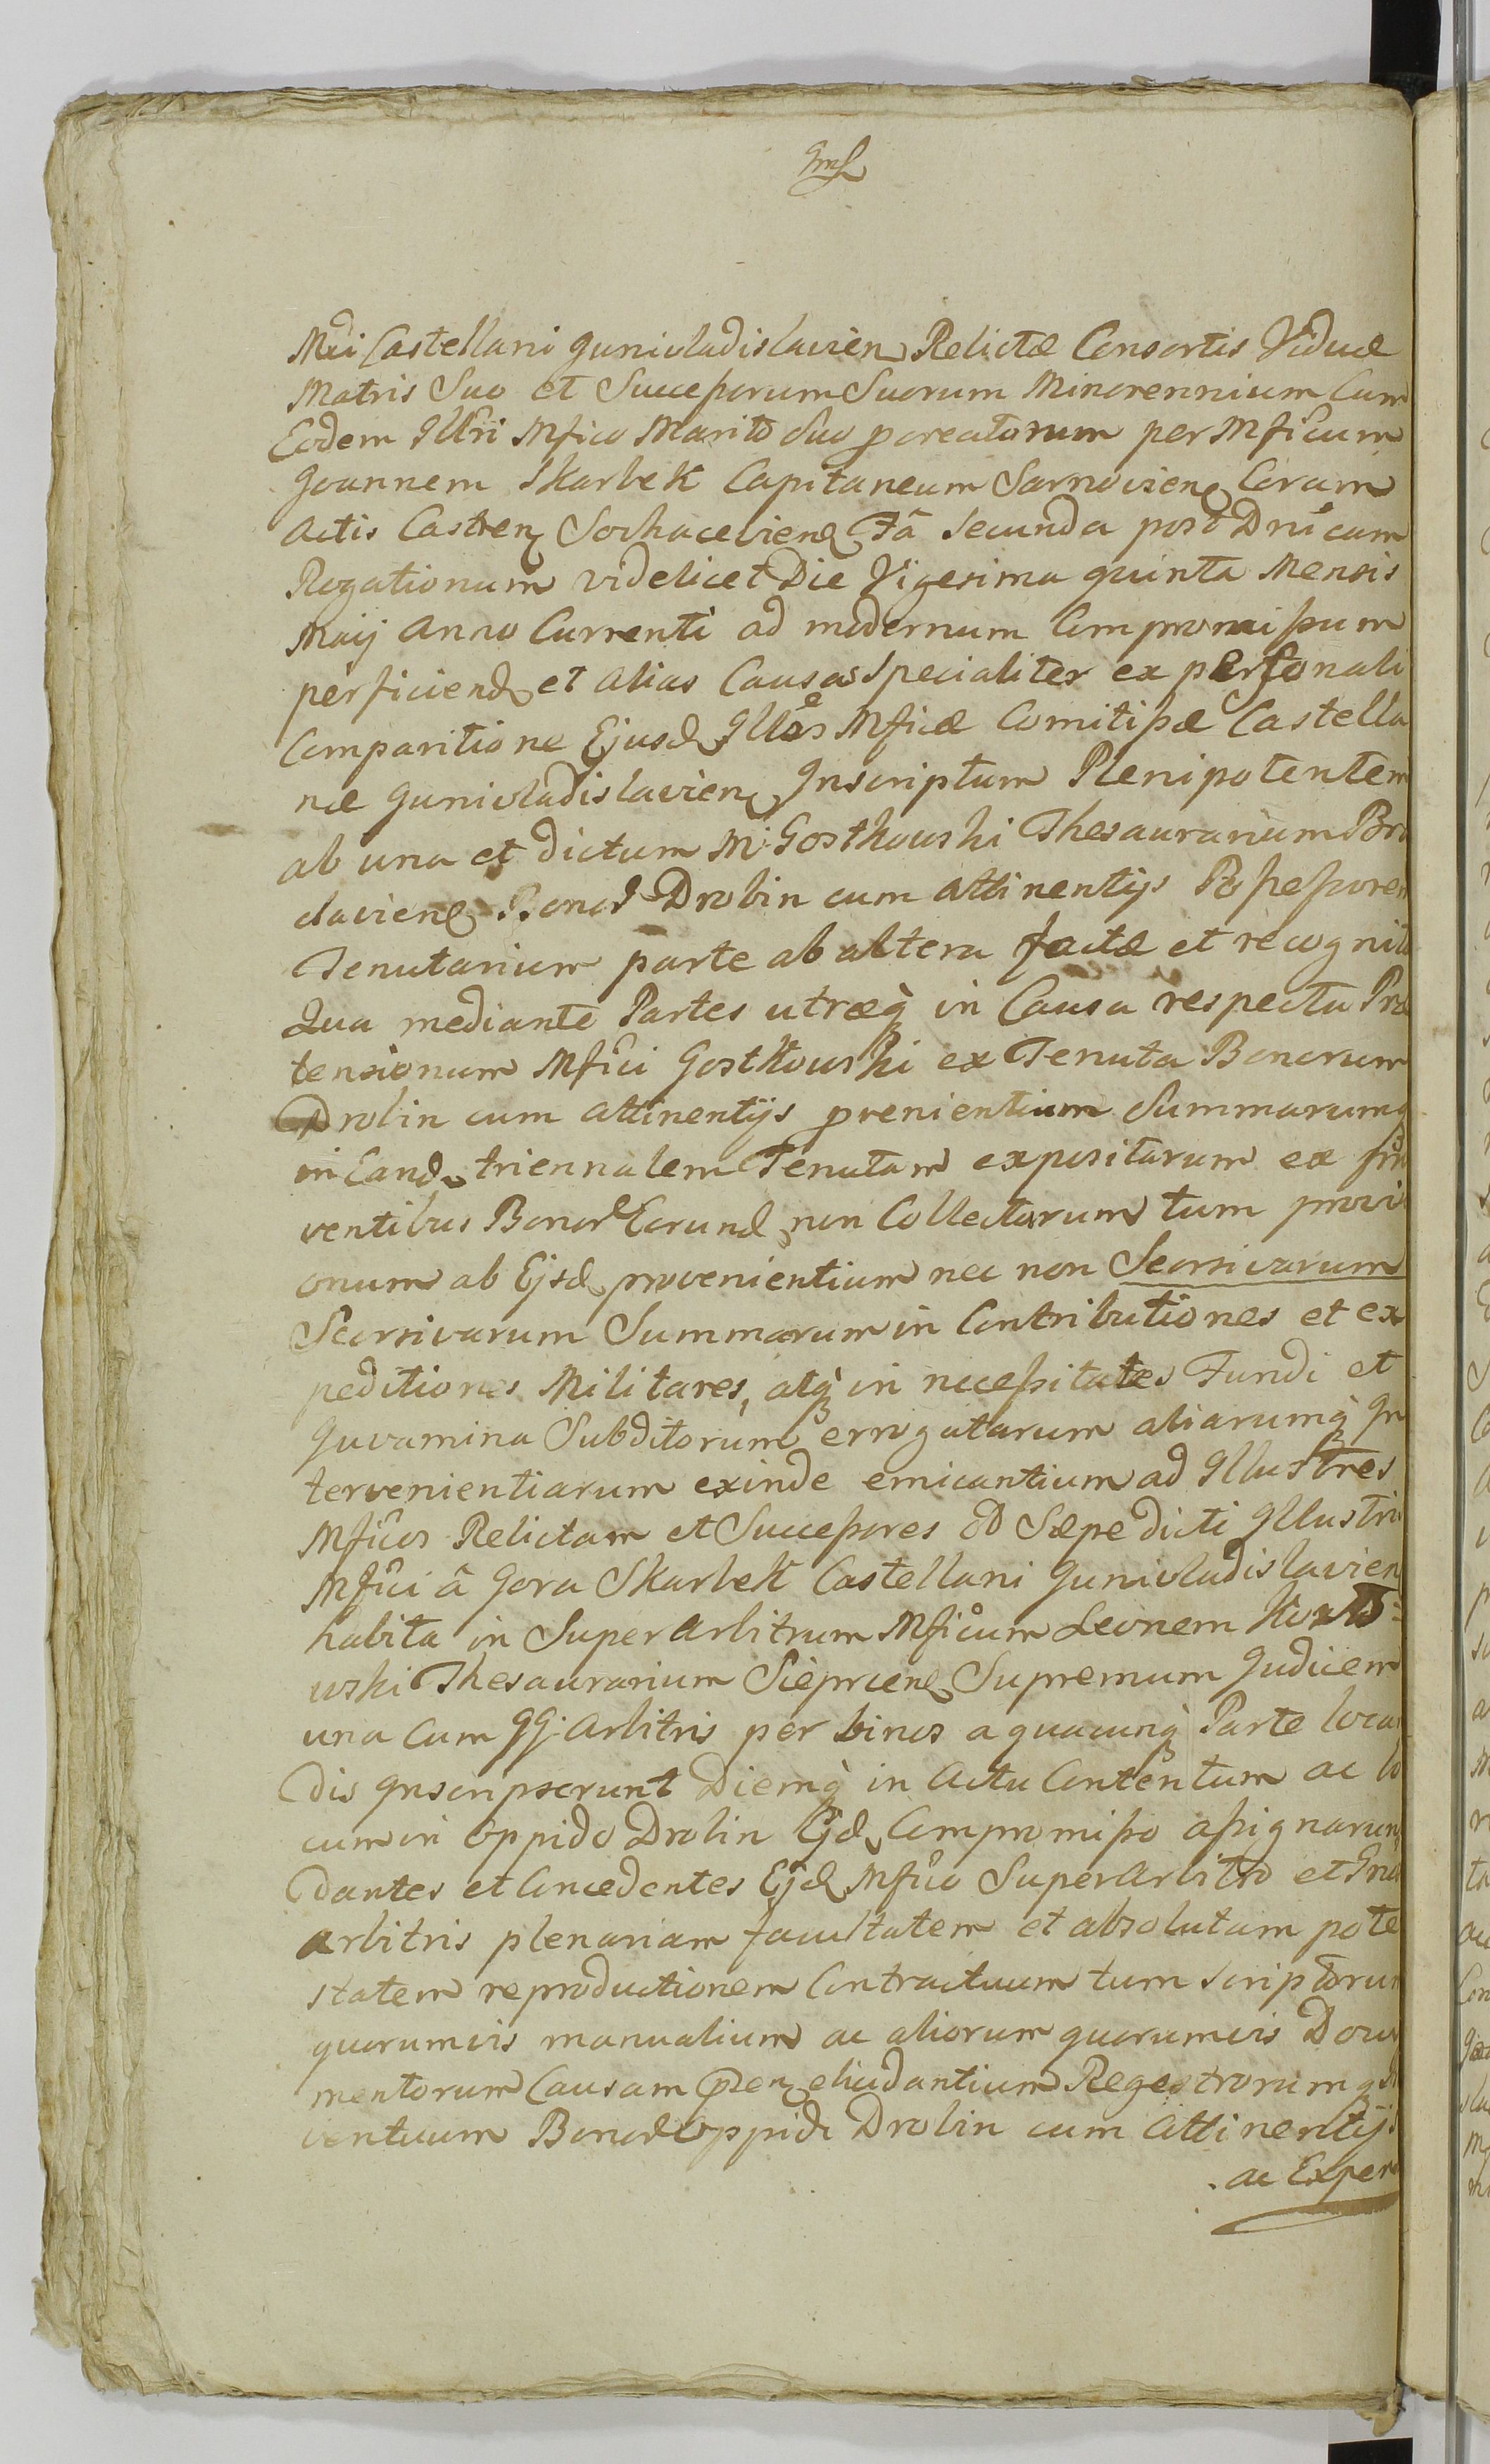 Mdi Castellani Junivladislavien Relictæ Consortis Viduæ
Matris Suo et Successorum Suorum Minorennium Cum
Eodem Illri Mfico Marito Suo procreatorum per Mficum
Joannem Skarbek Capitaneum Sarnovien Coram
Actis Castren Sochacevien Fâ Secunda post Dnicam
Rogationum videlicet Die Vigesima quinta Mensis
Maij Anno Currenti ad modernum Compromissum
perficiend et alias Causas specialiter ex personali
Comparitione Ejusd Illes Mficæ Comitissæ Castella
næ Junivladislavien Inscriptum Plenipotentem
ab una et dictum M. Gostkowski Thesaurarium
claviens Bonor Drobin cum attinentijs Possessorem
Tenutarium parte ab altera factæ et recognit
Qua mediante Partes utræq in Causa respectu Præ
tensionum Mfici Gostkowski ex Tenuta Bonorum
Drobin cum attinentijs provenientium Summarumq
in Eand triennalem Tenutam expositarum ex
ventibus Bonor Eorund non Collectarum tum provi
onum ab Ejsd provenientium nec non Seorsivarum
Seorsivarum Summarum in Contributiones et ex
peditiones Militares, atq in necessitates Fundi et
Juvamina Subditorum errogatarum aliarumq In
tervenientiarum exinde emicantium ad Illustres
Mficos Relictam et Successores Sæpe dicti Illustri
Mfici â Gora Skarbek Castellani Junivladislavien
habita in Super Arbitrum Mficum Leonem
wski Thesaurarium Sieprcens Supremum Judicem
una Cum GG. Arbitris per binos a quacunq Parte locan
dis Inscripserunt Diemq in Actu Contentum ac lo
cum in Oppido Drobin Ejsd Compromisso assignarunt
dantes et Concedentes Ejsd Mfico Super Arbitro et
Arbitris plenariam facultatem et absolutam pote
statem reproductionem Contractuum tum scriptorum
quorumvis manualium ac aliorum quorumvis Docu
mentorum Causam Præen elucidantium Regestrorum
ventuum Bonor Oppidi Drobin cum Attinentijs
ac Expen